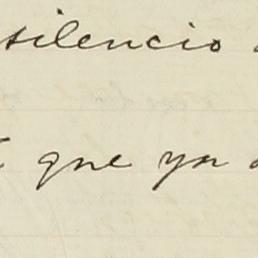 silencio
que ya